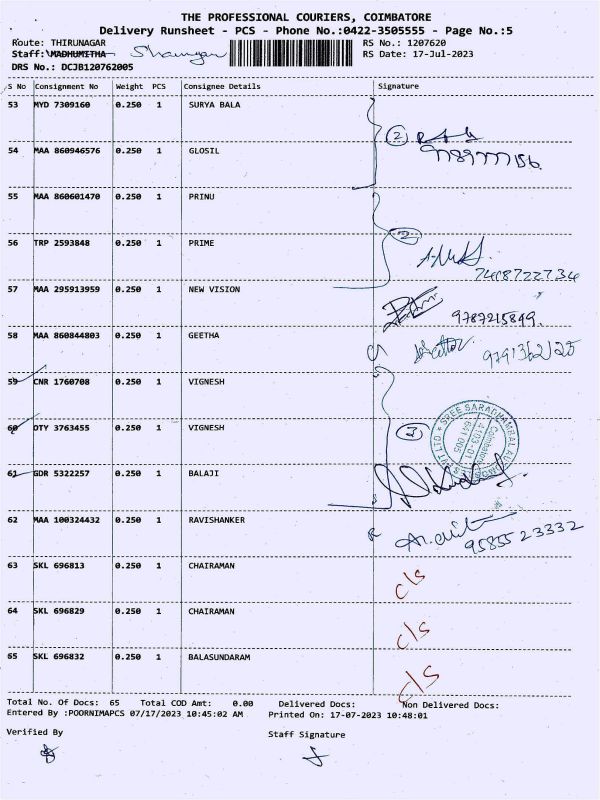 THE PROFESSIONAL COURIERS, COIMBATORE
Delivery Runsheet - PCS - Phone No.:0422-3505555 - Page No.:5
Route: THIRUNAGAR RS No.: 1207620
Staff: MADHUMITHA RS Date: 17-Jul-2023
DRS No.: DCJB120762005
S No Consignment No Weight PCS Consignee Details Signature
53 MYD 7309160 0.250 1 SURYA BALA
2
54 MAA 860946576 0.250 1 GLOSIL
55 MAA 860601470 0.250 1 PRINU
2
56 TRP 2593848 0.250 1 PRIME
7448722734
57 MAA 295913959 0.250 1 NEW VISION
9787215899.
58 MAA 860844803 0.250 1 GEETHA
59 CNR 1760708 0.250 1 VIGNESH
60 OTY 3763455 0.250 1 VIGNESH
3
61 GDR 5322257 0.250 1 BALAJI
62 MAA 100324432 0.250 1 RAVISHANKER
9585523332
63 SKL 696813 0.250 1 CHAIRAMAN c/s
64 SKL 696829 0.250 1 CHAIRAMAN c/s
65 SKL 696832 0.250 1 BALASUNDARAM c/s
Total No. Of Docs: 65 Total COD Amt: 0.00 Delivered Docs: Non Delivered Docs:
Entered By :POORNIMAPCS 07/17/2023 10:45:02 AM Printed On: 17-07-2023 10:48:01
Verified By Staff Signature